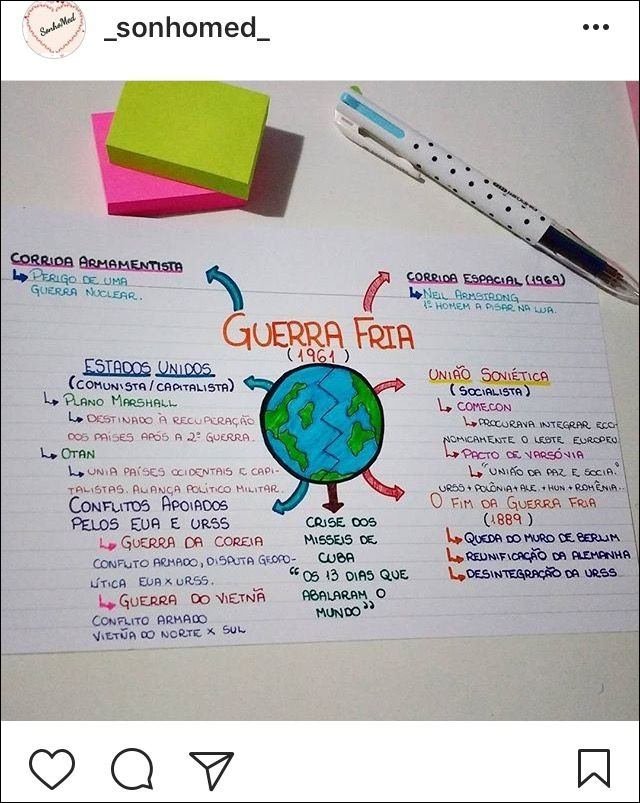 SonhoMed
_sonhomed_
CORRIDA ARMAMENTISTA
PERIGO DE UMA
GUERRA NUCLEAR.
CORRIDA ESPACIAL (1969)
NEIL ARMSTRONG
1º HOMEM A PISAR NA LUA.
GUERRA FRIA
(1961)
ESTADOS UNIDOS
(COMUNISTA/CAPITALISTA)
PLANO MARSHALL
DESTINADO À RECUPERAÇÃO
DOS PAÍSES APÓS A 2º GUERRA.
OTAN
UNIA PAÍSES OCIDENTAIS E CAPI-
TALISTAS. ALIANÇA POLÍTICO MILITAR.
CONFLITOS APOIADOS
PELOS EUA E URSS
GUERRA DA COREIA
CONFLITO ARMADO, DISPUTA GEOPO-
LÍTICA EUA X URSS.
GUERRA DO VIETNÃ
CONFLITO ARMADO
VIETNÃ DO NORTE X SUL
CRISE DOS
MISSEIS DE
CUBA
"OS 13 DIAS QUE
ABALARAM O
MUNDO"
UNIÃO SOVIÉTICA
(SOCIALISTA)
COMECON
PROCURAVA INTEGRAR ECO-
NOMICAMENTE O LESTE EUROPEU
PACTO DE VARSÓVIA
"UNIÃO DA PAZ E SOCIA."
URSS+POLÔNIA+ALE.+HUN+ROMÊNIA...
O FIM DA GUERRA FRIA
(1889)
QUEDA DO MURO DE BERLIM
REUNIFICAÇÃO DA ALEMANHA
DESINTEGRAÇÃO DA URSS